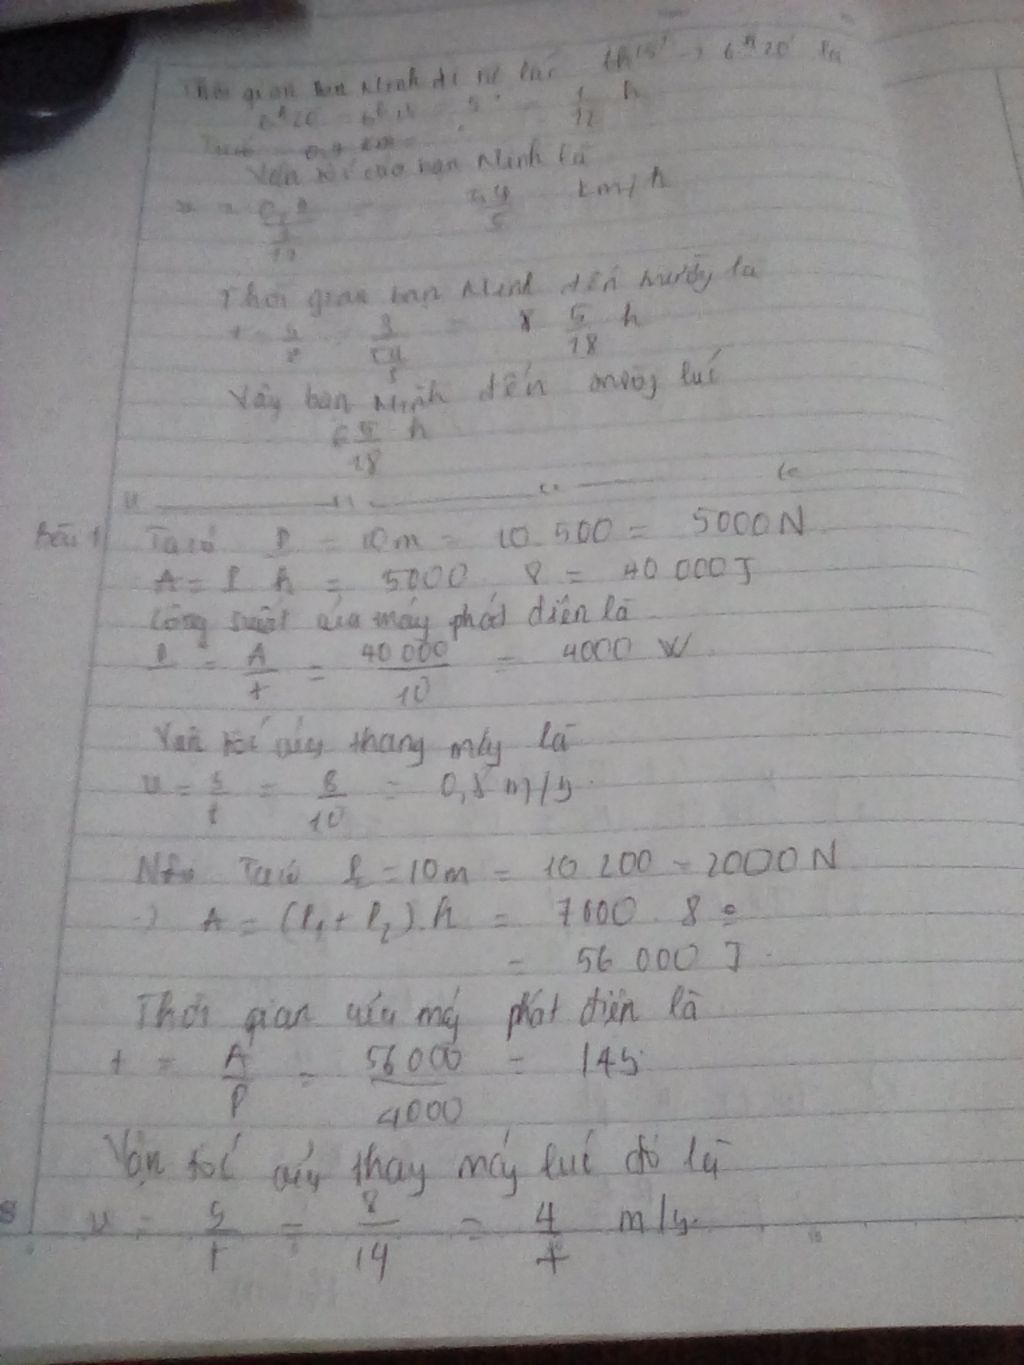 Thời gian bạn Minh đi từ lúc 6h15' → 6h20' là
6h20 - 6h15 = 5' = 1/12 h
Vận tốc của bạn Minh là
km/h
Thời gian bạn Minh đến trường là
5/18 h
Vậy bạn Minh đến trường lúc
6 5/18 h
Ta có P = 10m = 10.500 = 5000N
A = P h = 5000 8 = 40 000J
Công suất của máy phát điện là
P = A/t = 40 000/10 = 4000 W.
Vận tốc của thang máy là
v = s/t = 8/10 = 0,8 m/s.
Ta có P2 = 10m = 10 200 = 2000N
→ A = (P1 + P2).h = 7000 . 8 =
= 56 000 J.
Thời gian của máy phát điện là
t = A/P = 56 000/4000 = 14s.
Vận tốc của thay máy lúc đó là
v = s/t = 8/14 = 4/7 m/s.